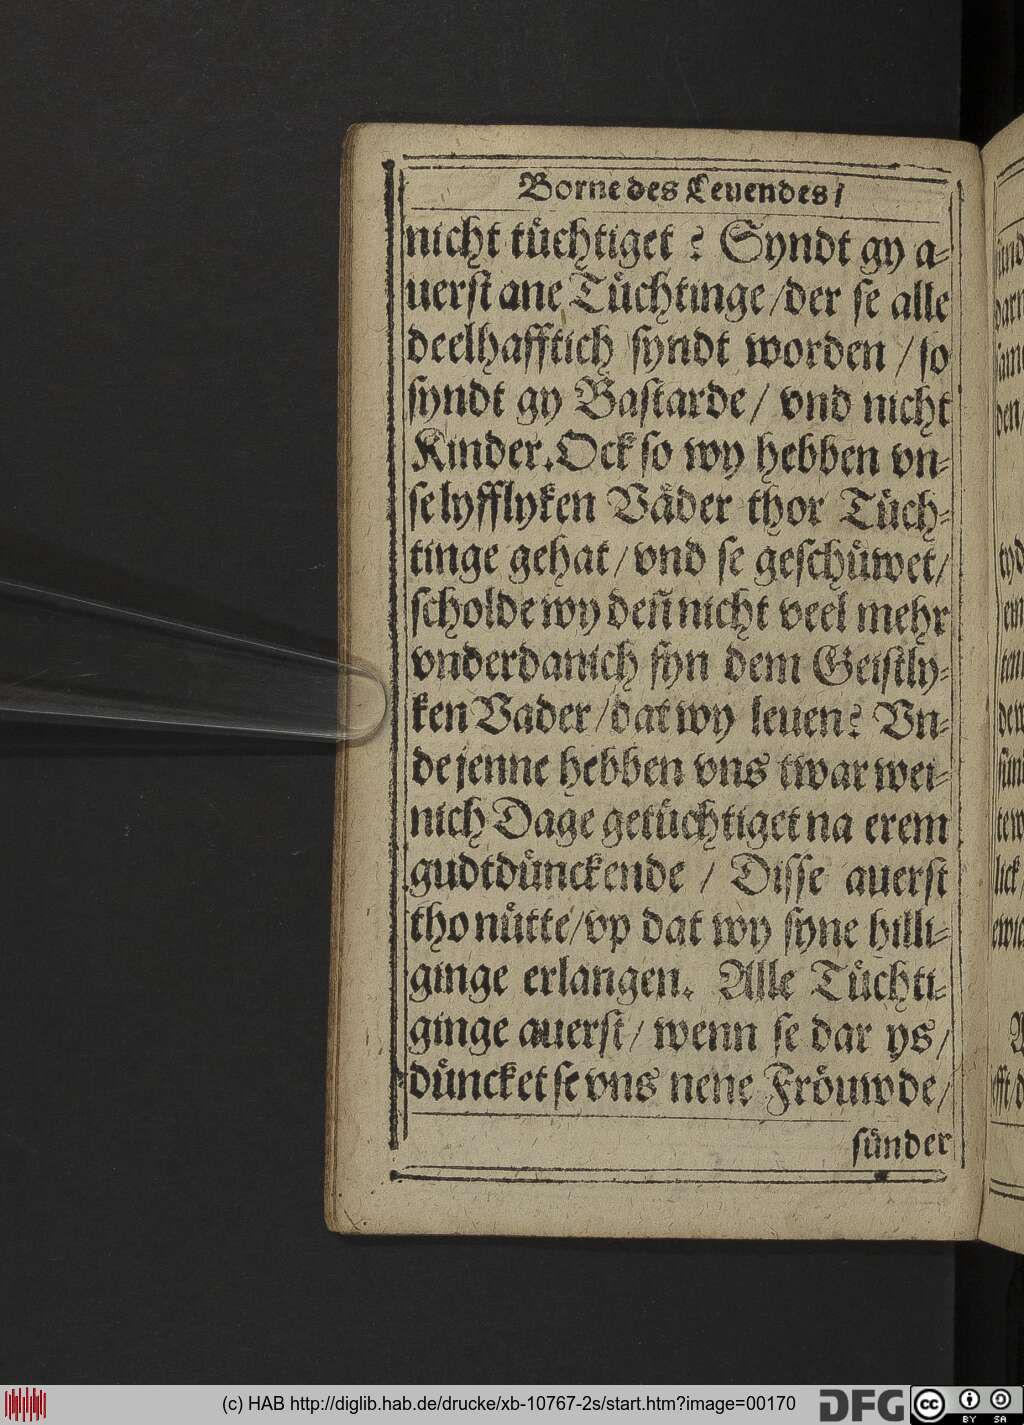 Borne des Leuendes /
nicht tüchtiget ? Syndt gy a-
uerst ane Tüchtinge / der se alle
deelhafftich syndt worden / so
syndt gy Bastarde / vnd nicht
Kinder. Ock so wy hebben vn-
se lyfflyken Väder thor Tüch-
tinge gehat / vnd se geschüwet /
scholde wy deñ nicht veel mehr
vnderdanich syn dem Geistly-
ken Vader / dat wy leuen? Vn-
de jenne hebben vns twar wei-
nich Dage getüchtiget na erem
gudtdünckende / Disse auerst
tho nütte / vp dat wy syne hilli-
ginge erlangen. Alle Tüchti-
ginge auerst / wenn se dar ys /
düncket se vns nene Fröuwde /
sünder
(c) HAB http://diglib.hab.de/drucke/xb-10767-2s/start.htm?image=00170
DFG
cc
BY SA